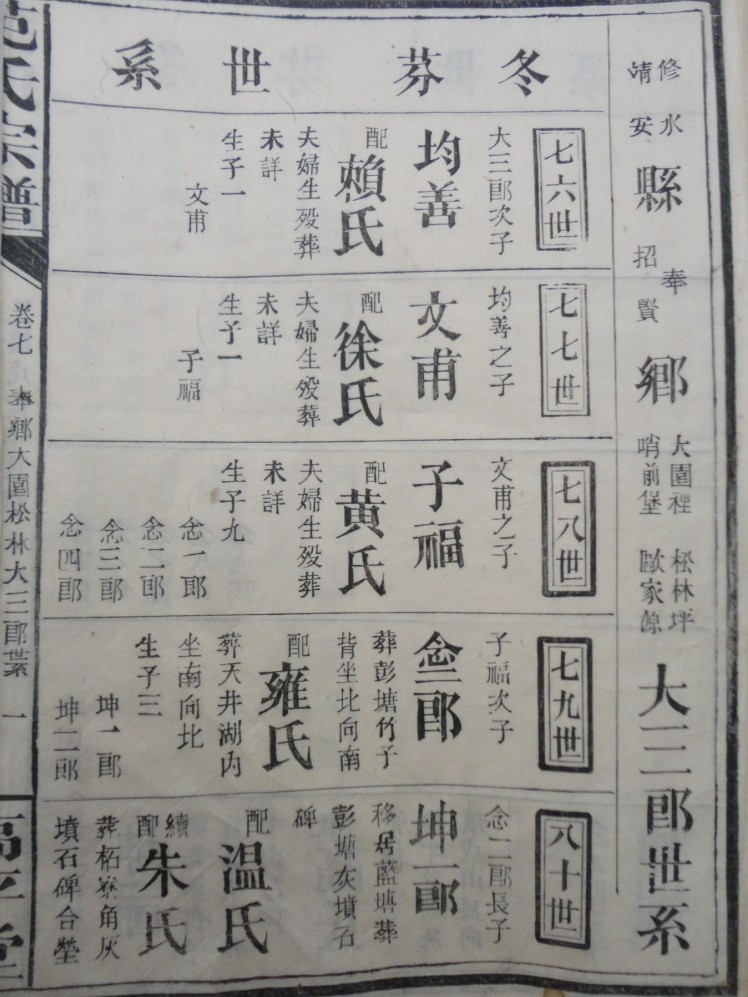 修水
靖安
縣
奉
招賢
鄉
大園裡 松林坪
哨前堡 歐家源
大三郎世系
冬芬世系
七六世
大三郎次子
均善
配
賴氏
夫婦生殁葬
未詳
生子一
文甫
七七世
均善之子
文甫
配
徐氏
夫婦生殁葬
未詳
生子一
子福
七八世
文甫之子
子福
配
黄氏
夫婦生殁葬
未詳
生子九
念一郎
念二郎
念三郎
念四郎
七九世
子福次子
念二郎
葬彭塘竹子
背坐比向南
配
雍氏
葬天井湖内
坐南向北
生子三
坤一郎
坤二郎
八十世
念二郎長子
坤一郎
移居藍塘葬
彭塘灰墳石
碑
配
温氏
續配
朱氏
葬柘寮角灰
墳石碑合塋
范氏宗譜
卷七
奉鄉大園松林大三郎世系
一
高平堂